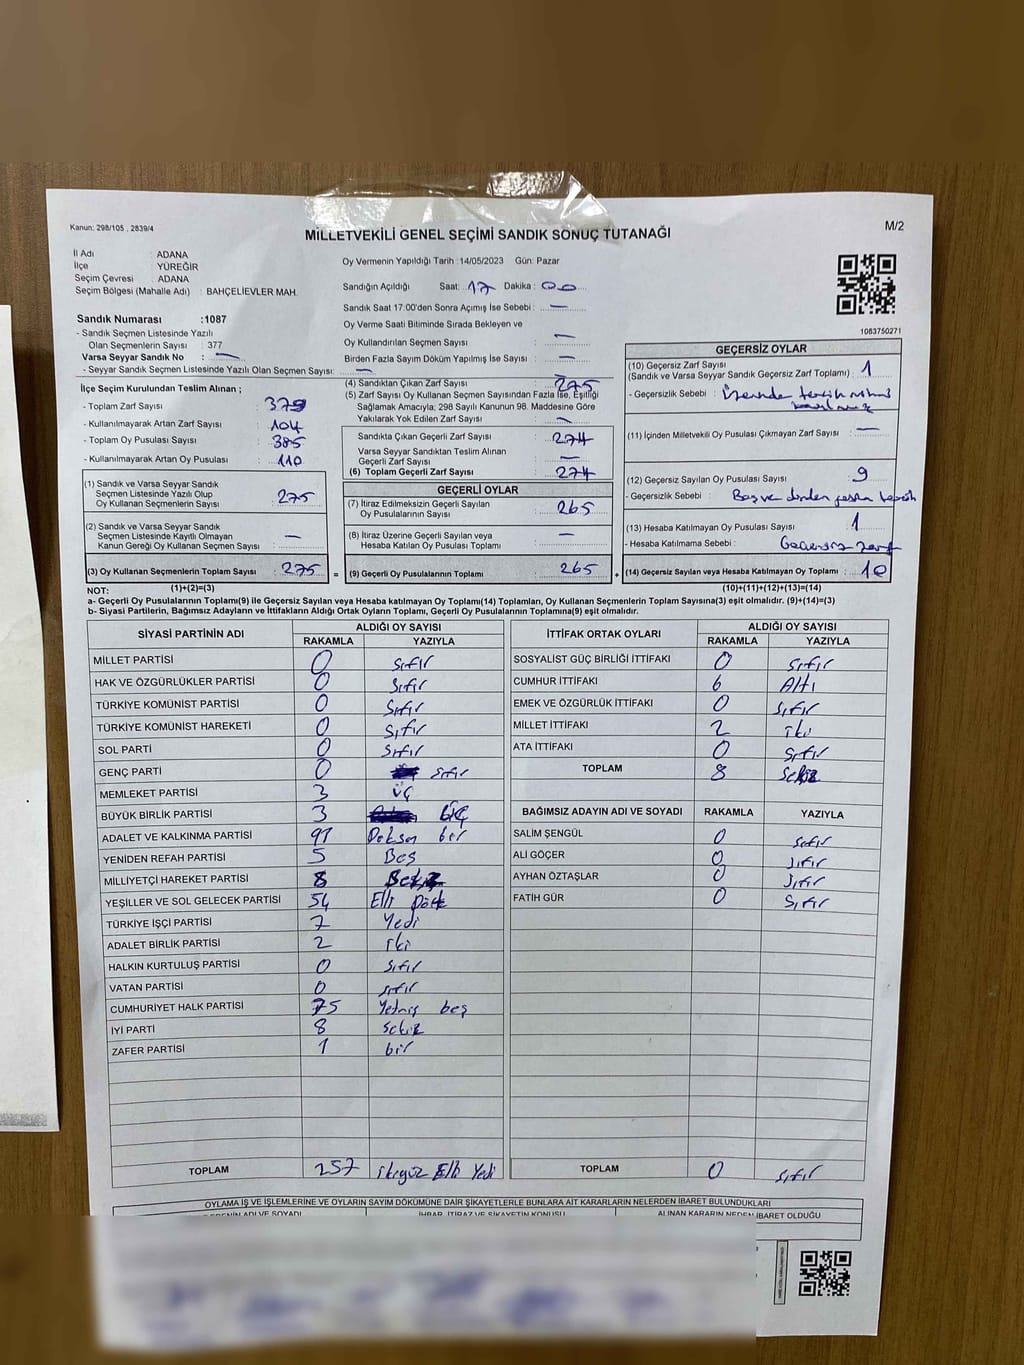 Kanun: 298/105 , 2839/4
M/2
MİLLETVEKİLİ GENEL SEÇİMİ SANDIK SONUÇ TUTANAĞI
İl Adı : ADANA
İlçe YÜREĞİR
Seçim Çevresi : ADANA
Seçim Bölgesi (Mahalle Adı) : BAHÇELİEVLER MAH.
Oy Vermenin Yapıldığı Tarih :14/05/2023 Gün: Pazar
Sandığın Açıldığı Saat: 17 Dakika : 00
Sandık Saat 17:00'den Sonra Açımış İse Sebebi : —
Oy Verme Saati Bitiminde Sırada Bekleyen ve
Oy Kullandırılan Seçmen Sayısı : —
Birden Fazla Sayım Döküm Yapılmış İse Sayısı : —
1083750271
Sandık Numarası :1087
- Sandık Seçmen Listesinde Yazılı
Olan Seçmenlerin Sayısı : 377
Varsa Seyyar Sandık No : —
- Seyyar Sandık Seçmen Listesinde Yazılı Olan Seçmen Sayısı: —
İlçe Seçim Kurulundan Teslim Alınan ;
- Toplam Zarf Sayısı : 379
- Kullanılmayarak Artan Zarf Sayısı : 104
- Toplam Oy Pusulası Sayısı : 385
- Kullanılmayarak Artan Oy Pusulası : 110
(1) Sandık ve Varsa Seyyar Sandık
Seçmen Listesinde Yazılı Olup
Oy Kullanan Seçmenlerin Sayısı : 275
(2) Sandık ve Varsa Seyyar Sandık
Seçmen Listesinde Kayıtlı Olmayan
Kanun Gereği Oy Kullanan Seçmen Sayısı : —
(3) Oy Kullanan Seçmenlerin Toplam Sayısı : 275 =
(4) Sandıktan Çıkan Zarf Sayısı : 275
(5) Zarf Sayısı Oy Kullanan Seçmen Sayısından Fazla İse, Eşitliği
Sağlamak Amacıyla; 298 Sayılı Kanunun 98. Maddesine Göre
Yakılarak Yok Edilen Zarf Sayısı : —
Sandıkta Çıkan Geçerli Zarf Sayısı : 274
Varsa Seyyar Sandıktan Teslim Alınan
Geçerli Zarf Sayısı : —
(6) Toplam Geçerli Zarf Sayısı : 274
GEÇERLİ OYLAR
(7) İtiraz Edilmeksizin Geçerli Sayılan
Oy Pusulalarının Sayısı : 265
(8) İtiraz Üzerine Geçerli Sayılan veya
Hesaba Katılan Oy Pusulası Toplamı : —
(9) Geçerli Oy Pusulalarının Toplamı : 265 +
GEÇERSİZ OYLAR
(10) Geçersiz Zarf Sayısı
(Sandık ve Varsa Seyyar Sandık Geçersiz Zarf Toplamı) : 1
- Geçersizlik Sebebi : Üzerinde tercih mührü
(11) İçinden Milletvekili Oy Pusulası Çıkmayan Zarf Sayısı : —
(12) Geçersiz Sayılan Oy Pusulası Sayısı : 9
- Geçersizlik Sebebi : Boş ve birden fazla tercih
(13) Hesaba Katılmayan Oy Pusulası Sayısı : 1
- Hesaba Katılmama Sebebi : Geçersiz zarf
(14) Geçersiz Sayılan veya Hesaba Katılmayan Oy Toplamı : 10
NOT: (1)+(2)=(3) (10)+(11)+(12)+(13)=(14)
a- Geçerli Oy Pusulalarının Toplamı(9) ile Geçersiz Sayılan veya Hesaba katılmayan Oy Toplamı(14) Toplamları, Oy Kullanan Seçmenlerin Toplam Sayısına(3) eşit olmalıdır. (9)+(14)=(3)
b- Siyasi Partilerin, Bağımsız Adayların ve İttifakların Aldığı Ortak Oyların Toplamı, Geçerli Oy Pusulalarının Toplamına(9) eşit olmalıdır.
SİYASİ PARTİNİN ADI ALDIĞI OY SAYISI
RAKAMLA YAZIYLA
MİLLET PARTİSİ 0 Sıfır
HAK VE ÖZGÜRLÜKLER PARTİSİ 0 Sıfır
TÜRKİYE KOMÜNİST PARTİSİ 0 Sıfır
TÜRKİYE KOMÜNİST HAREKETİ 0 Sıfır
SOL PARTİ 0 Sıfır
GENÇ PARTİ 0 Sıfır
MEMLEKET PARTİSİ 3 üç
BÜYÜK BİRLİK PARTİSİ 3 üÇ
ADALET VE KALKINMA PARTİSİ 91 Doksan bir
YENİDEN REFAH PARTİSİ 5 Beş
MİLLİYETÇİ HAREKET PARTİSİ 8 Sekiz
YEŞİLLER VE SOL GELECEK PARTİSİ 54 Elli Dört
TÜRKİYE İŞÇİ PARTİSİ 7 Yedi
ADALET BİRLİK PARTİSİ 2 iki
HALKIN KURTULUŞ PARTİSİ 0 Sıfır
VATAN PARTİSİ 0 Sıfır
CUMHURİYET HALK PARTİSİ 75 Yetmiş beş
İYİ PARTİ 8 Sekiz
ZAFER PARTİSİ 1 bir
TOPLAM 257 ikiyüz Elli Yedi
İTTİFAK ORTAK OYLARI ALDIĞI OY SAYISI
RAKAMLA YAZIYLA
SOSYALİST GÜÇ BİRLİĞİ İTTİFAKI 0 Sıfır
CUMHUR İTTİFAKI 6 Altı
EMEK VE ÖZGÜRLÜK İTTİFAKI 0 Sıfır
MİLLET İTTİFAKI 2 iki
ATA İTTİFAKI 0 Sıfır
TOPLAM 8 Sekiz
BAĞIMSIZ ADAYIN ADI VE SOYADI RAKAMLA YAZIYLA
SALİM ŞENGÜL 0 Sıfır
ALİ GÖÇER 0 Sıfır
AYHAN ÖZTAŞLAR 0 Sıfır
FATİH GÜR 0 Sıfır
TOPLAM 0 Sıfır
OYLAMA İŞ VE İŞLEMLERİNE VE OYLARIN SAYIM DÖKÜMÜNE DAİR ŞİKAYETLERLE BUNLARA AİT KARARLARIN NELERDEN İBARET BULUNDUKLARI
ADI VE SOYADI İHBAR, İTİRAZ VE ŞİKAYETİN KONUSU ALINAN KARARIN NEDEN İBARET OLDUĞU